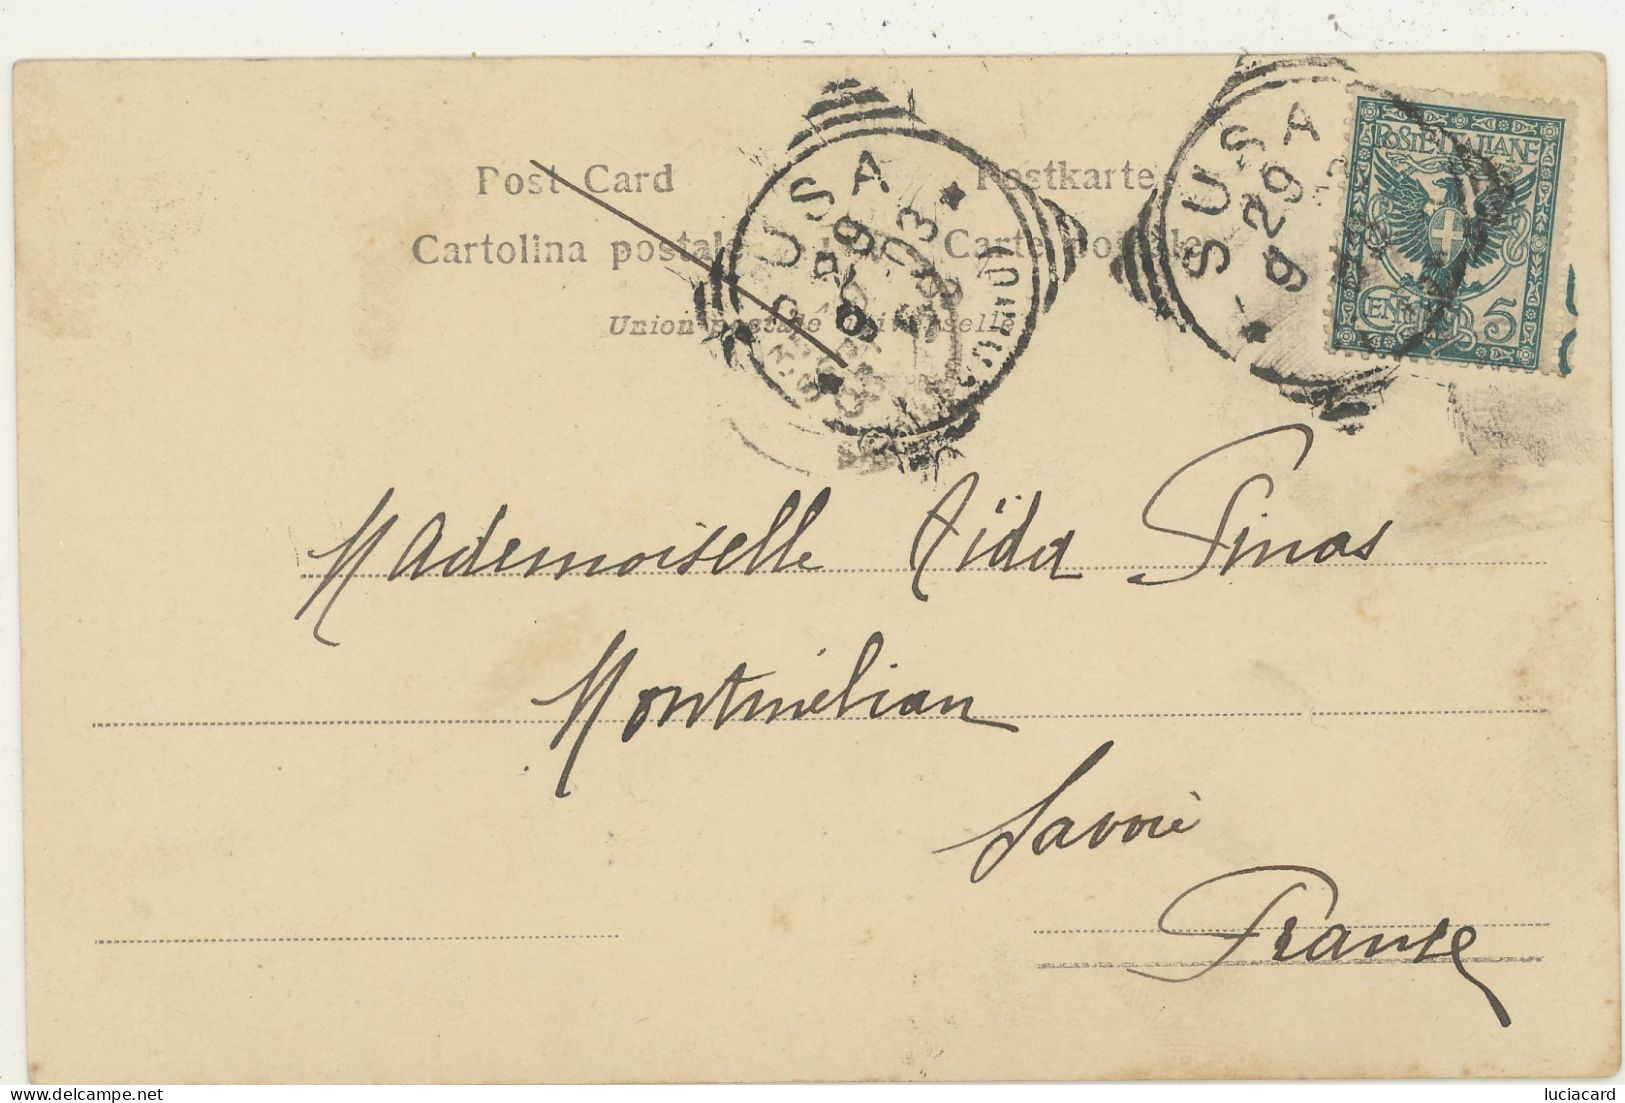 Post Card Postkarte
Cartolina postale Carte postale
Union postale universelle
SUSA
(TORINO)
9 29
03
SUSA
9 29
POSTE ITALIANE
5
Mademoiselle Aïda Pinas
Montmélian
Savoie
France
luciacard